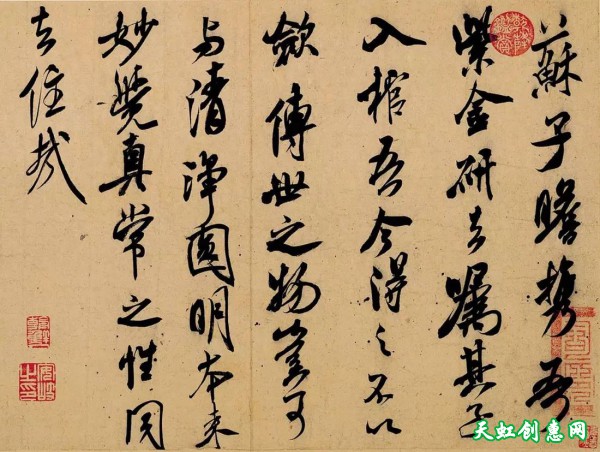 蘇子瞻携吾
紫金研去嘱其子
入棺吾今得之不以
歛傳世之物豈可
与清淨圓明本来
妙覺真常之性同
去住哉
天虹创惠网